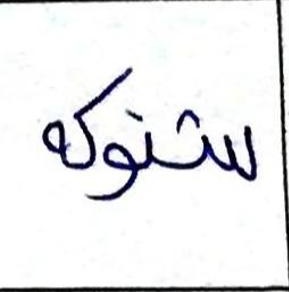 شنوكه